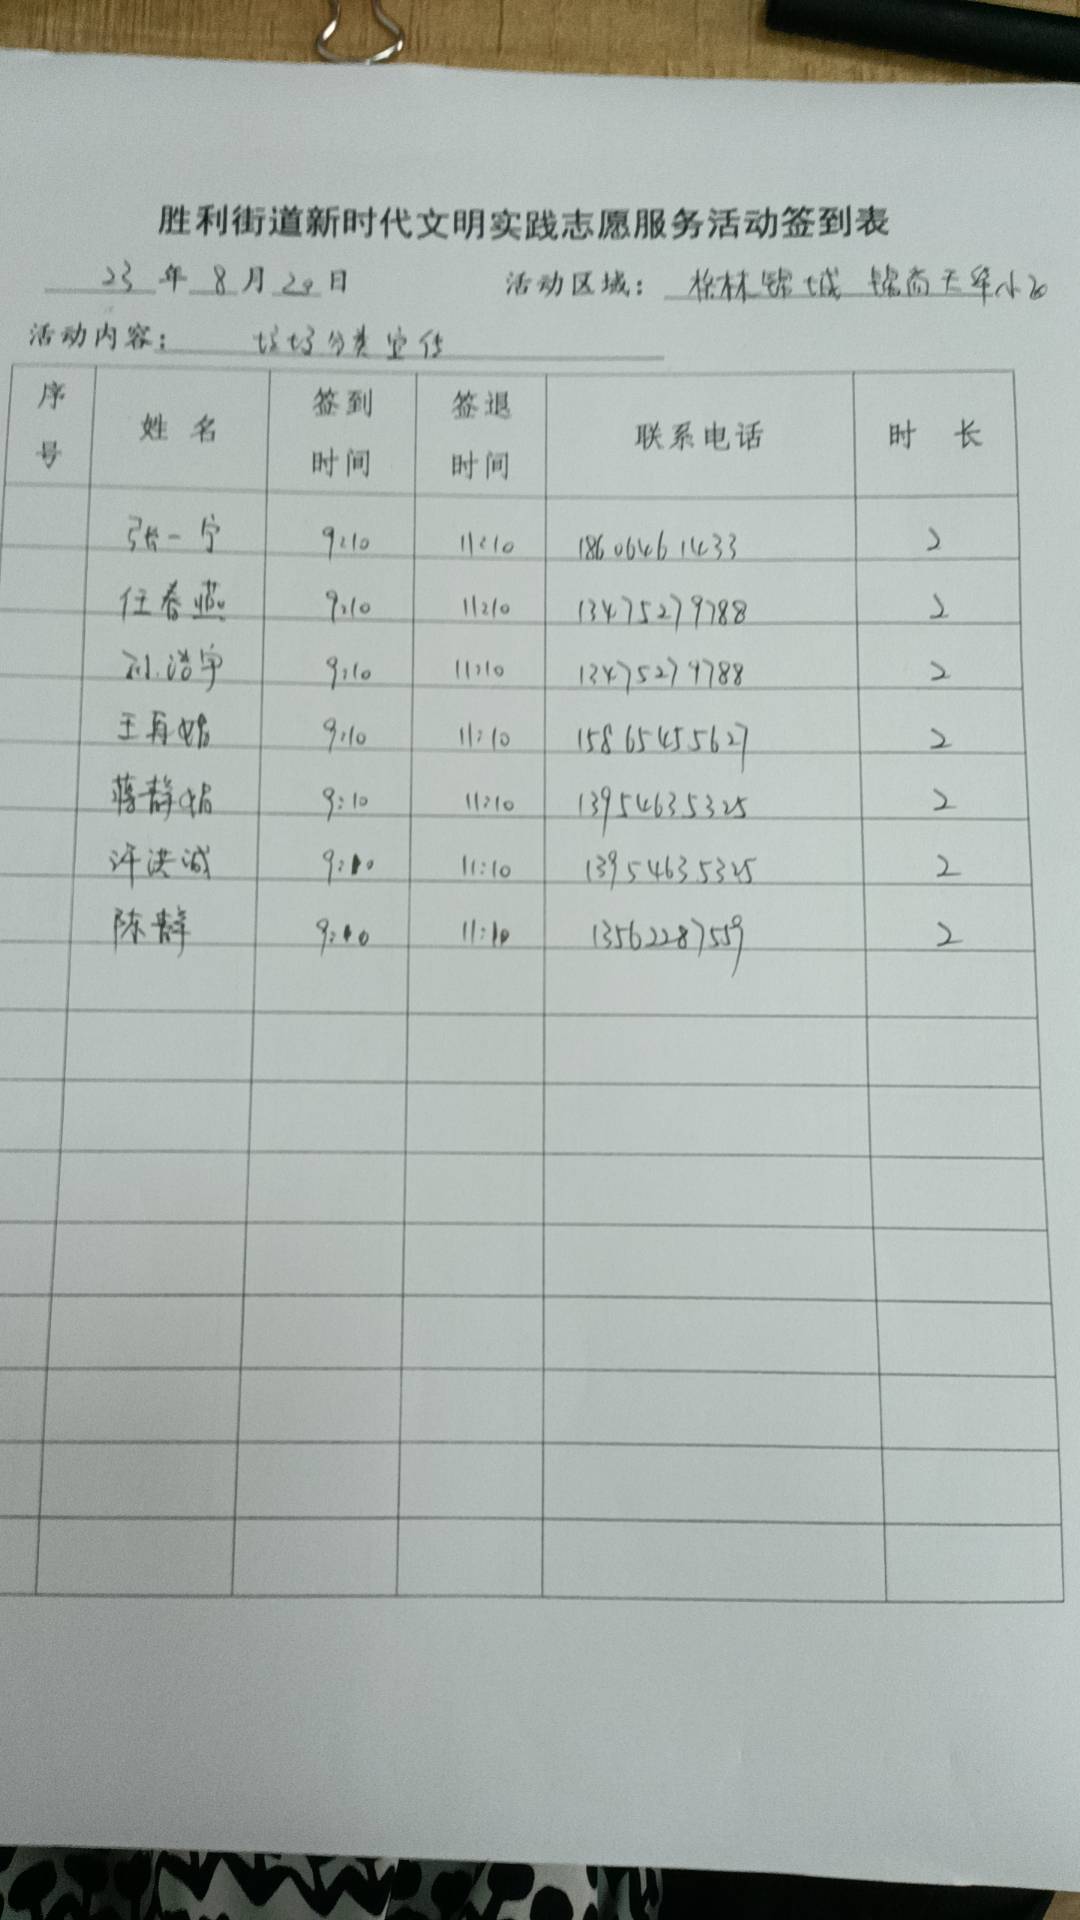 胜利街道新时代文明实践志愿服务活动签到表
23年8月20日 活动区域: 林锦城 锦苑天华小区
活动内容: 垃圾分类宣传
序号 姓名 签到时间 签退时间 联系电话 时长
张一宁 9:10 11:10 18606461433 2
任春燕 9:10 11:10 13475279788 2
孙浩宇 9:10 11:10 13475279788 2
王再娟 9:10 11:10 15865455627 2
蒋静娟 9:10 11:10 13954635325 2
许洪诚 9:10 11:10 13954635325 2
陈静 9:10 11:10 13562287559 2